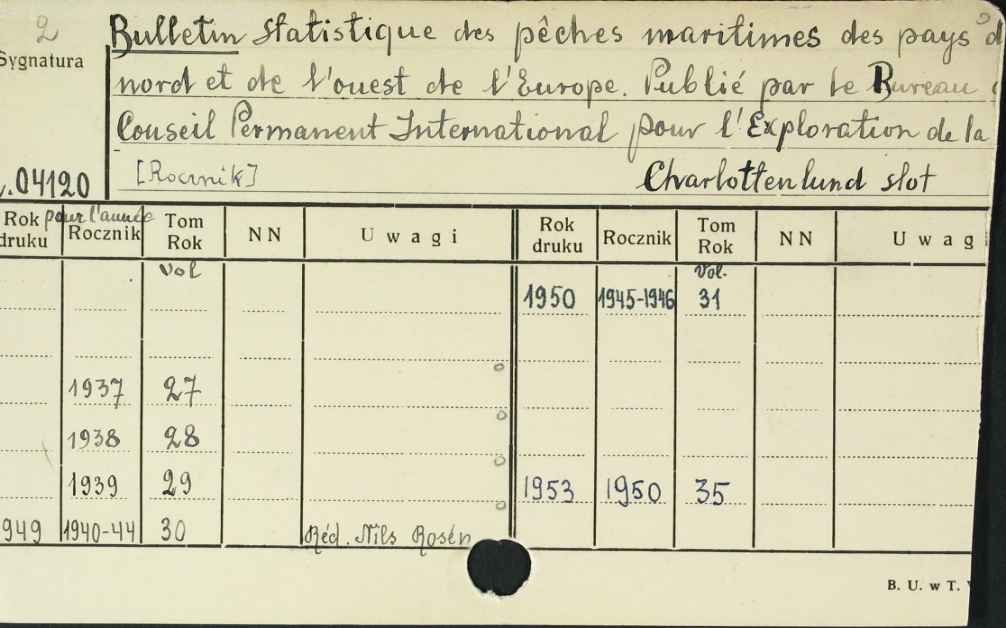 2
Sygnatura
Bulletin statistique des pêches maritimes des pays d
nord et de l'ouest de l'Europe. Publié par le Bureau
Conseil Permanent International pour l'Exploration de la
.04120
[Rocznik] Charlottenlund slot
Rok druku pour l'année Rocznik Tom Rok NN Uwagi Rok druku Rocznik Tom Rok NN Uwagi
vol vol.
1950 1945-1946 31
1937 27
1938 28
1939 29 1953 1950 35
949 1940-44 30 Réd. Nils Rosén
B. U. w T.